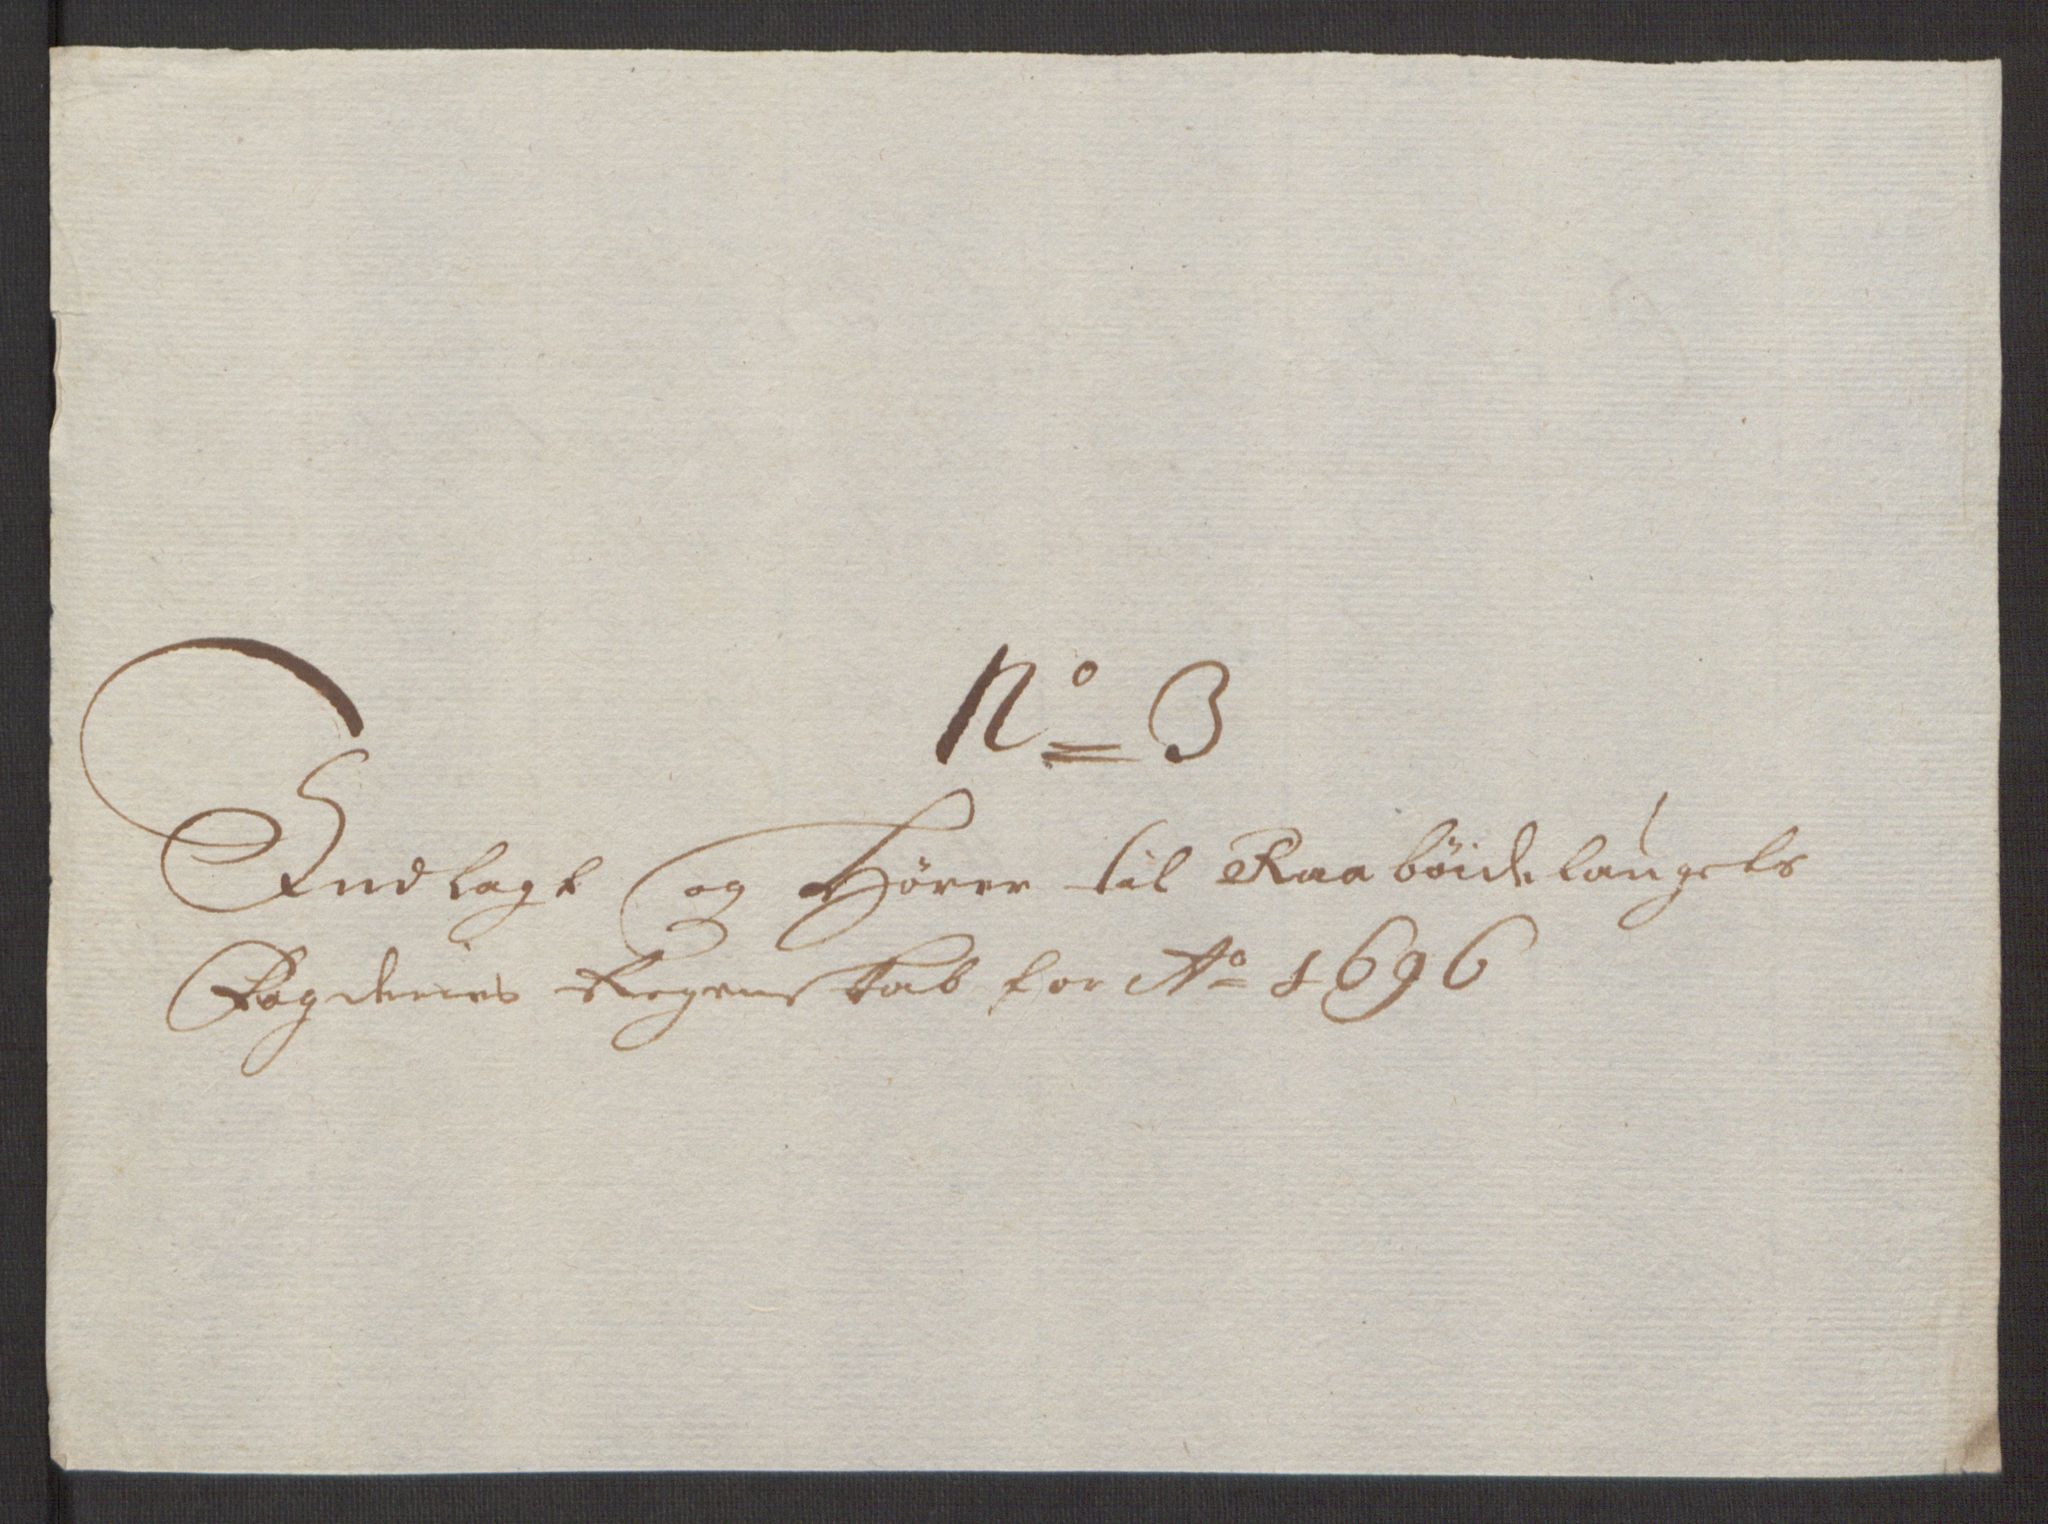 No 3
Indlagt og Hører til Raabøidelaugets
Fogderies Regenskab for Ao 1696